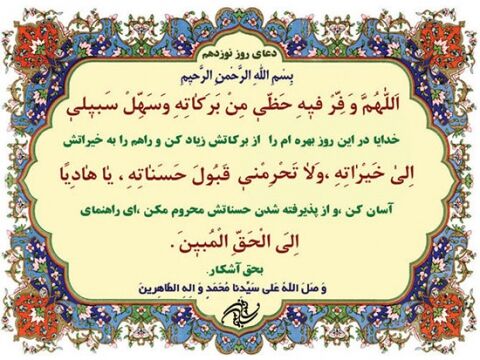 دعای روز نوزدهم
بِسْمِ اللهِ الرَّحْمنِ الرَّحیمِ
اَللّهُمَّ وَفِّرْ فیهِ حَظّی مِنْ بَرَکاتِهِ وَسَهِّلْ سَبیلی
خدایا در این روز بهره ام را از برکاتش زیاد کن و راهم را به خیراتش
اِلیٰ خَیْراتِهِ ،وَلاٰ تَحْرِمْنی قَبُولَ حَسَناتِهِ ، یا هادِیًا
آسان کن ،و از پذیرفته شدن حسناتش محروم مکن ،ای راهنمای
اِلَی الْحَقِّ الْمُبینِ .
بحق آشکار.
وَ صَلَ اللهُ عَلی سَیِّدِنا مُحَمَدٍ وَ الِهِ الطاهِرینَ